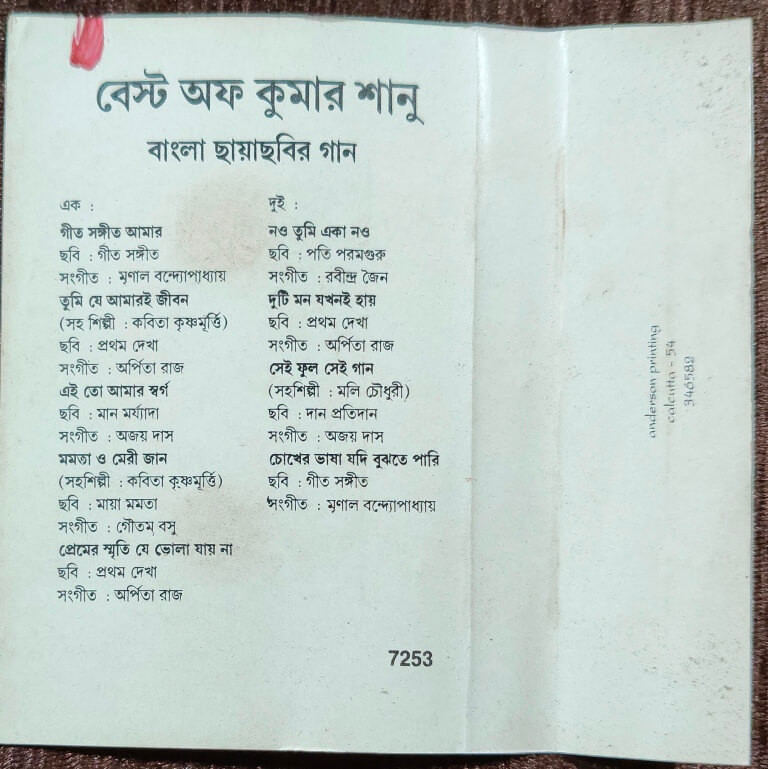 বেস্ট অফ কুমার শানু
বাংলা ছায়াছবির গান
এক :
গীত সঙ্গীত আমার
ছবি : গীত সঙ্গীত
সংগীত : মৃণাল বন্দ্যোপাধ্যায়
তুমি যে আমারই জীবন
(সহ শিল্পী : কবিতা কৃষ্ণমূর্ত্তি)
ছবি : প্রথম দেখা
সংগীত : অর্পিতা রাজ
এই তো আমার স্বর্গ
ছবি : মান মর্য্যাদা
সংগীত : অজয় দাস
মমতা ও মেরী জান
(সহশিল্পী : কবিতা কৃষ্ণমূর্ত্তি)
ছবি : মায়া মমতা
সংগীত : গৌতম বসু
প্রেমের স্মৃতি যে ভোলা যায় না
ছবি : প্রথম দেখা
সংগীত : অর্পিতা রাজ
দুই :
নও তুমি একা নও
ছবি : পতি পরমগুরু
সংগীত : রবীন্দ্র জৈন
দুটি মন যখনই হায়
ছবি : প্রথম দেখা
সংগীত : অর্পিতা রাজ
সেই ফুল সেই গান
(সহশিল্পী : মলি চৌধুরী)
ছবি : দান প্রতিদান
সংগীত : অজয় দাস
চোখের ভাষা যদি বুঝতে পারি
ছবি : গীত সঙ্গীত
সংগীত : মৃণাল বন্দ্যোপাধ্যায়
7253
anderson printing
calcutta - 54
346582